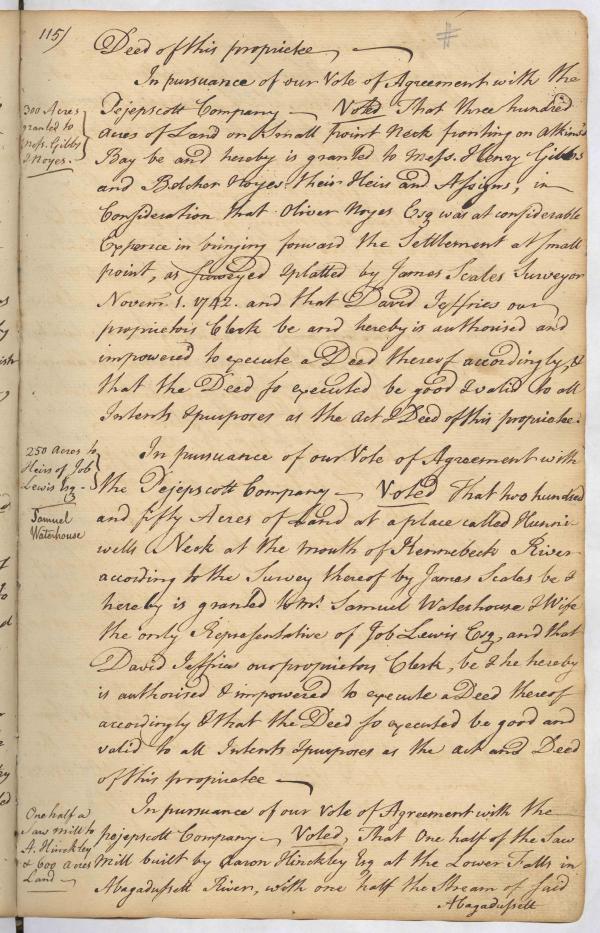 115/
Deed of this proprietee
In pursuance of our Vote of Agreement with the
300 Acres
granted to
Mess. Gibbs
& Noyes.
Pejepscott Company — Voted That three hundred
acres of Land on Small point Neck fronting on Atkins's
Bay be and hereby is granted to Mess. Henry Gibbs
and Belcher Noyes their Heirs and Assigns, in
Consideration that Oliver Noyes Esq was at considerable
Expence in bringing forward the Settlement at Small
point, as surveyed & platted by James Scales Surveyor
Novem. 1. 1742. and that David Jeffries our
proprietors Clerk be and hereby is authorised and
impowered to execute a Deed thereof accordingly, &
that the Deed so executed be good & valid to all
Intents & purposes as the Act & Deed of this proprietee.
250 Acres to
Heirs of Job
Lewis Esq -
Samuel
Waterhouse
In pursuance of our Vote of Agreement with
the Pejepscott Company — Voted That two hundred
and fifty Acres of Land at a place called Hunni-
wells Neck at the mouth of Kennebeck River
according to the Survey thereof by James Scales be &
hereby is granted to Mr. Samuel Waterhouse & Wife
the only Representative of Job Lewis Esq, and that
David Jeffries our proprietors Clerk, be & he hereby
is authorised & impowered to execute a Deed thereof
accordingly & that the Deed so executed be good and
valid to all Intents & purposes as the Act and Deed
of this proprietee —
One half a
Saw Mill to
A. Hinckley
& 600 Acres
Land —
In pursuance of our Vote of Agreement with the
Pejepscott Company — Voted, That One half of the Saw
Mill built by Aaron Hinckley Esq at the Lower Falls in
Abagadussett River, with one half the Stream of said
Abagadussett